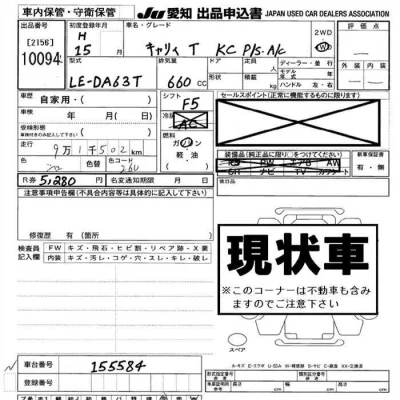 車内保管・守衛保管
JU 愛知 出品申込書 JAPAN USED CAR DEALERS ASSOCIATION
[2156]
10094
初度登録年月
H
15 月
車名・グレード
キャリイ T KC P/S A/C
2WD
評価点
型式
LE-DA63T
排気量
660 cc
ドア 定員
形状 積載
人
kg
ディーラー・並行
モデル
年式
ハンドル 左・右
外装 内装
車歴
自家用・
車検
年 月( 日)
受検形態
シフト
F5
冷房
AC
セールスポイント(正常に機能するものに限ります)
走行
9万1千502 km
燃料
ガソリン
軽油
色 色替 色コード
26U
装備品(純正品に限り)をつけてください
エアB AW
ナビ TV カワシート
新車保証書
有・無
R券 5,280 円 名変通知期限 月 日
注意事項申告欄(不具合内容等は具体的に記入して下さい)
修復歴 有 (箇所 )
検査員
記入欄
FW キズ・飛石・ヒビ割・リペア跡・X要
内装 キズ・汚レ・コゲ・穴・スレ・キレ・破レ
現状車
※このコーナーは不動車も含み
ますのでご注意下さい
スペア
車台番号
155584
登録番号